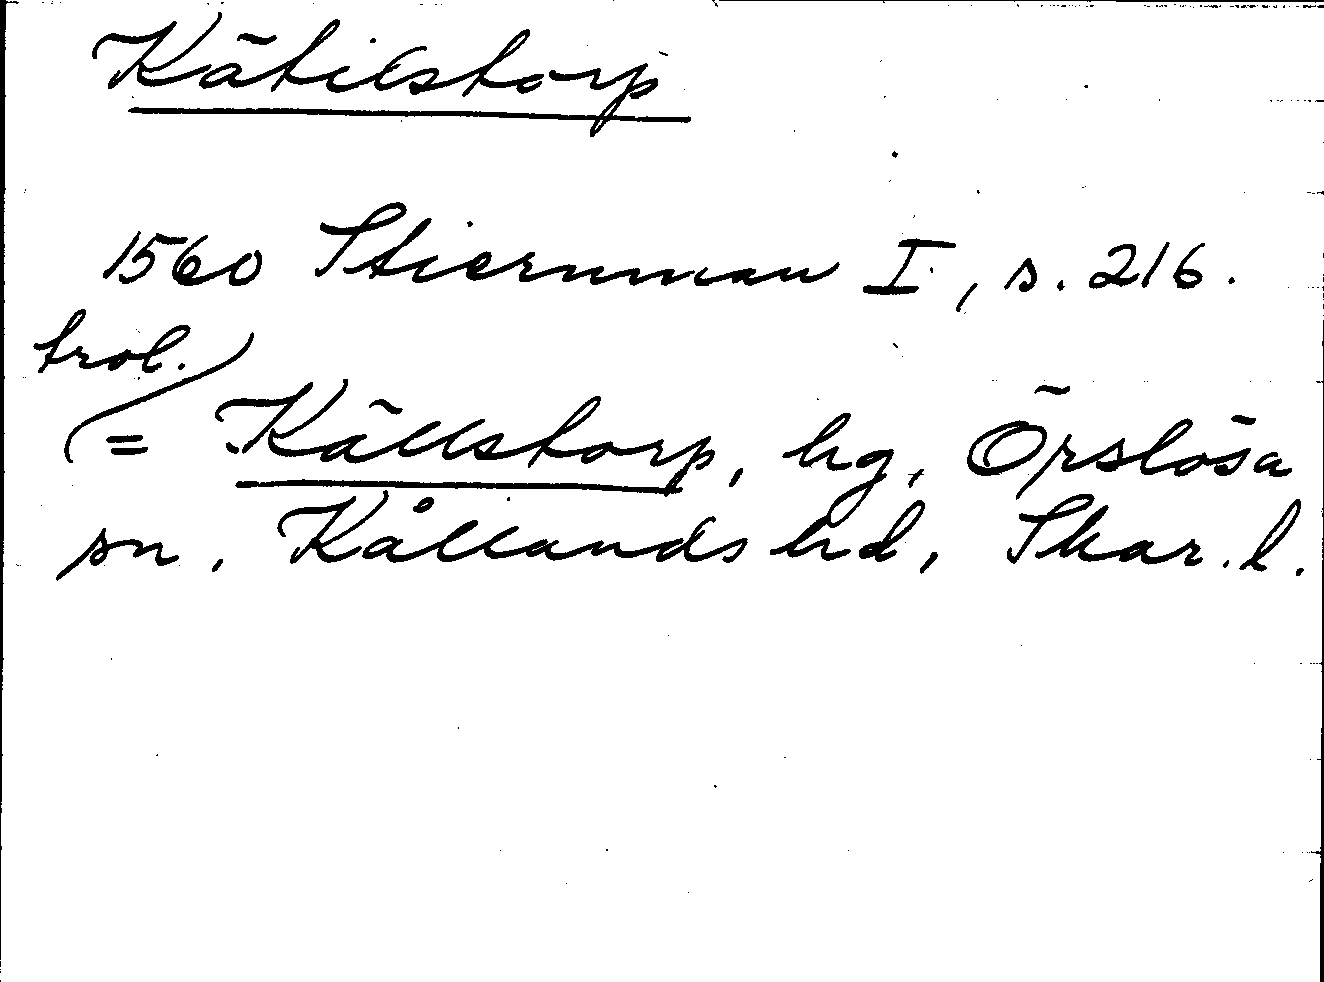 Kätilstorp
1560 Stiernman I, s. 216.
trol.
= Källstorp, hg, Örslösa
sn, Kållands hd, Skar. l.